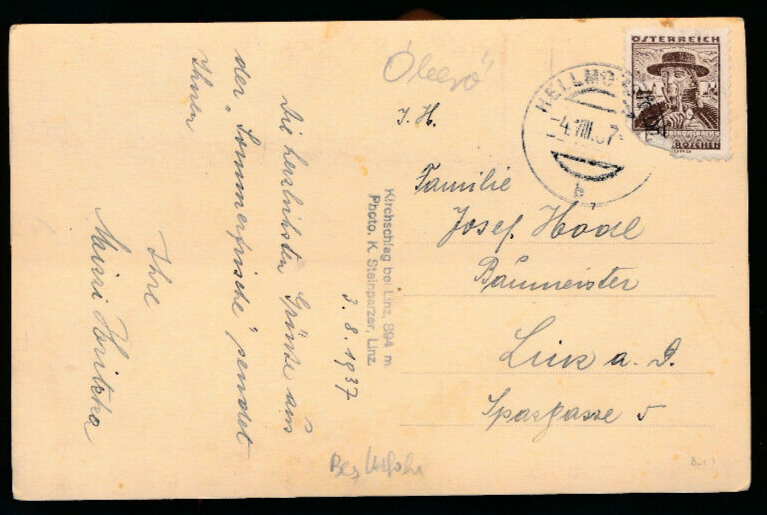 Die herzlichsten Grüsse aus
der „Sommerfrische" sendet
Ihnen
Ihre
3.8.1937
Kirchschlag bei Linz, 894 m
Photo. K. Steinparzer, Linz.
ÖSTERREICH
GROSCHEN
HELLMO
-4.VIII.37-
b
Familie
Josef
Baumeister
Linz a. D.
Spargasse 5